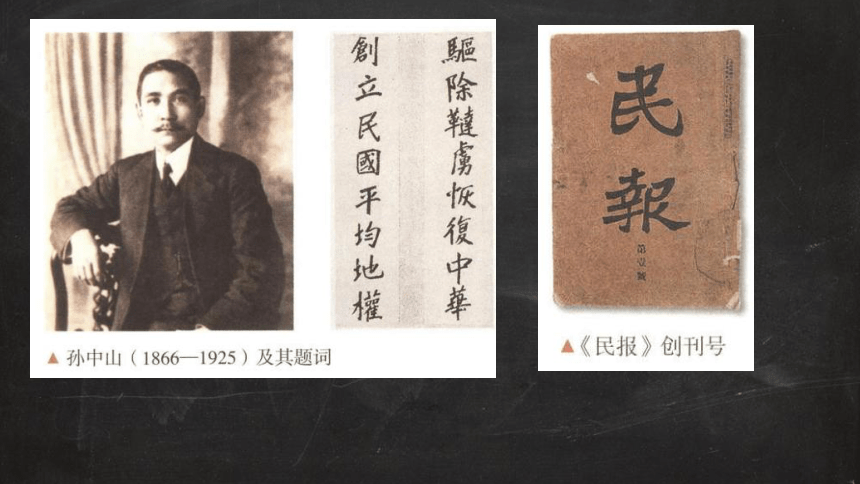 驅除韃虜恢復中華
創立民國平均地權
▲ 孙中山（1866—1925）及其题词
民報
第壹號
▲《民报》创刊号